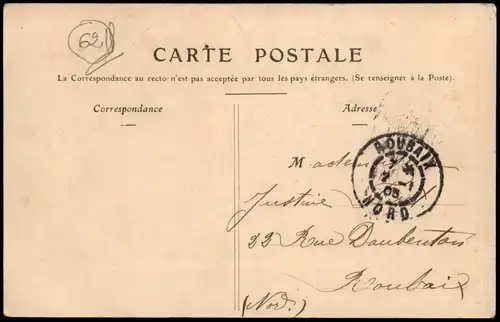 62
CARTE POSTALE
La Correspondance au recto n'est pas acceptée par tous les pays étrangers. (Se renseigner à la Poste).
Correspondance
Adresse
ROUBAIX
05
NORD
Justine
32 Rue Daubenton
Roubaix
(Nord.)